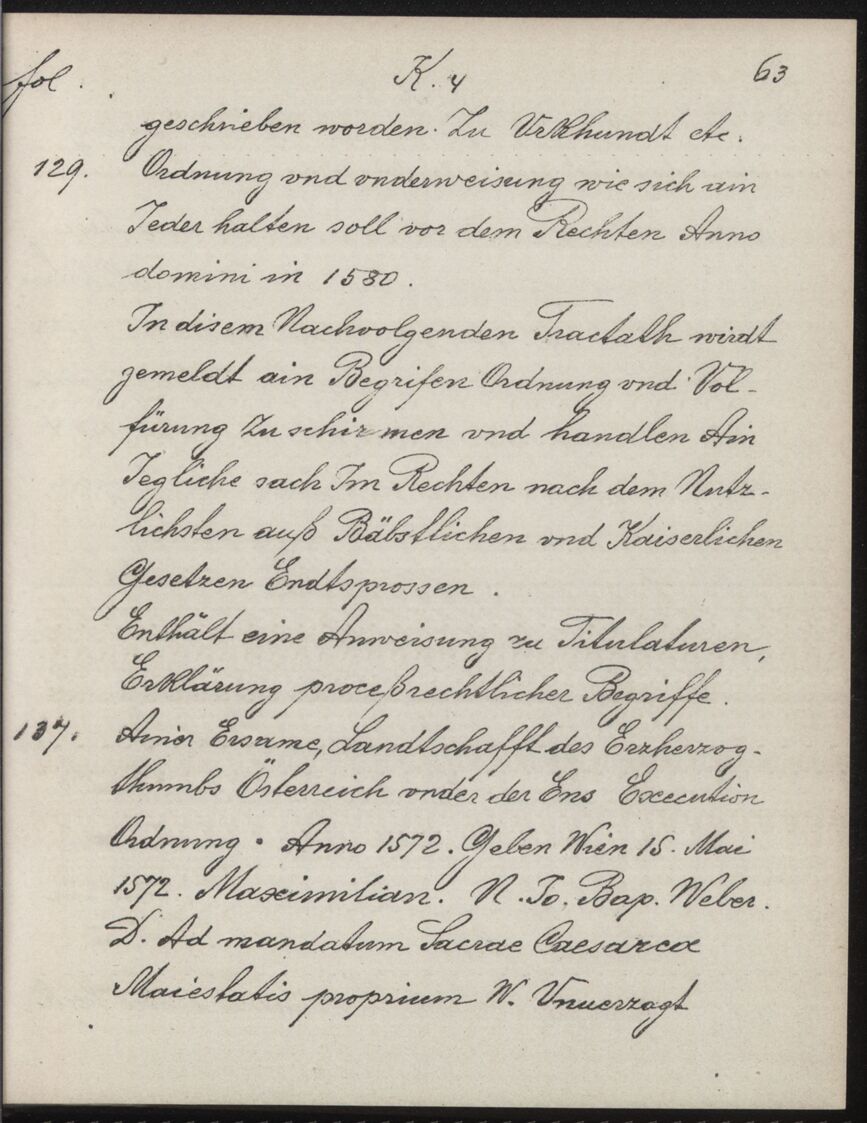 fol. K. 4 63
geschrieben worden. Zu Vrkhundt etc.
129. Ordnung vnd vnderweisung wie sich ain
Jeder halten soll vor dem Rechten Anno
domini in 1580.
In disem Nachvolgenden Tractath wirdt
gemeldt ain Begrifen Ordnung vnd Vol-
fürung Zu schirmen vnd handlen Ain
Jegliche sach Im Rechten nach dem Nutz-
lichsten auß Bäbstlichen vnd Kaiserlichen
Gesetzen Endtsprossen.
Enthält eine Anweisung zu Titulaturen,
Erklärung proceßrechtlicher Begriffe.
137. Ainer Ersame, Landtschafft des Erzherzog-
thumbs Österreich vnder der Ens Execution
Ordnung. Anno 1572. Geben Wien 15. Mai
1572. Maximilian. N. Jo. Bap. Weber.
D. Ad mandatum Sacrae Caesareae
Maiestatis proprium W. Vnuerzagt